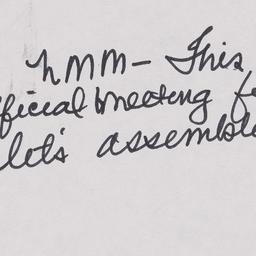 hmm- This
fficial meeting f
let's assemble